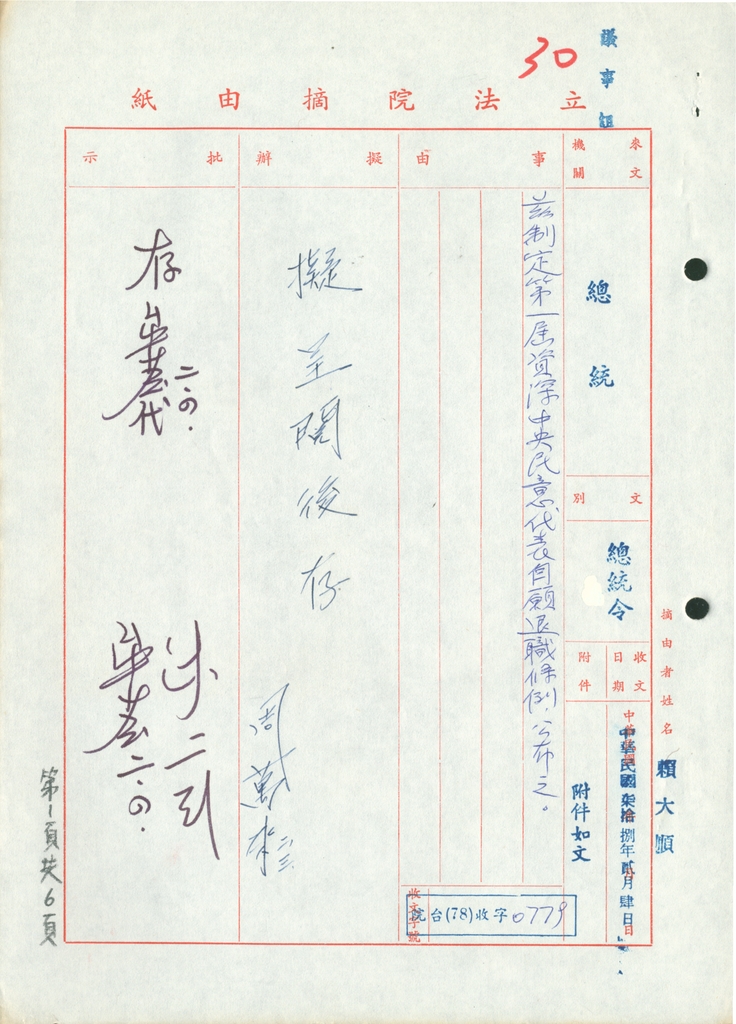 30
議事組
立法院摘由紙
來文機關
總統
文別
總統令
收文日期
中華民國柒拾捌年貳月肆日
附件
附件如文
摘由者姓名
賴大順
事由
茲制定第一屆資深中央民意代表自願退職條例，公布之。
收文字號
院台(78)收字0779
擬辦
擬呈閱後存
周萬來
二、三
批示
存
二、四
朱
二、四
第1頁共6頁